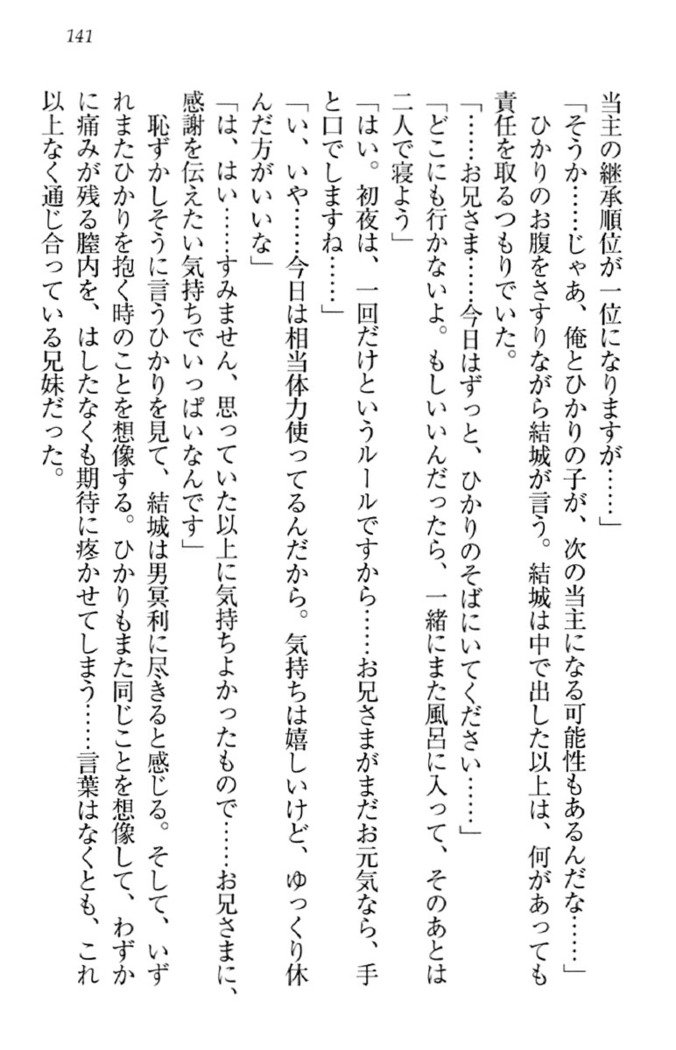 141
当主の継承順位が一位になりますが……」
「そうか……じゃあ、俺とひかりの子が、次の当主になる可能性もあるんだな……」
ひかりのお腹をさすりながら結城が言う。結城は中で出した以上は、何があっても
責任を取るつもりでいた。
「……お兄さま……今日はずっと、ひかりのそばにいてください……」
「どこにも行かないよ。もしいいんだったら、一緒にまた風呂に入って、そのあとは
二人で寝よう」
「はい。初夜は、一回だけというルールですから……お兄さまがまだお元気なら、手
と口でしますね……」
「い、いや……今日は相当体力使ってるんだから。気持ちは嬉しいけど、ゆっくり休
んだ方がいいな」
「は、はい……すみません、思っていた以上に気持ちよかったもので……お兄さまに、
感謝を伝えたい気持ちでいっぱいなんです」
恥ずかしそうに言うひかりを見て、結城は男冥利に尽きると感じる。そして、いず
れまたひかりを抱く時のことを想像する。ひかりもまた同じことを想像して、わずか
に痛みが残る膣内を、はしたなくも期待に疼かせてしまう……言葉はなくとも、これ
以上なく通じ合っている兄妹だった。